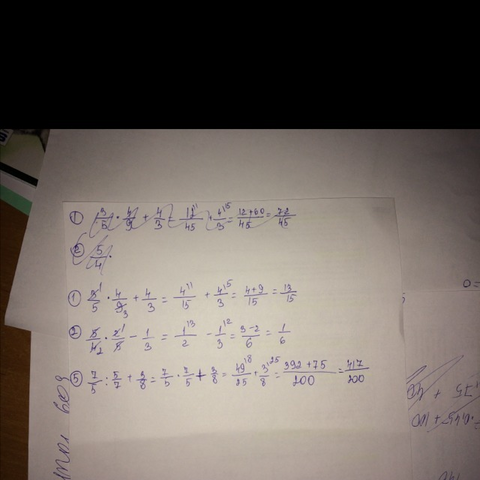 ① 3/5 · 4/9 + 4/3 = 12/45 + 4/3 = 12+60/45 = 72/45
② 5/4 ·
① 3/5 · 4/9 + 4/3 = 4/15 + 4/3 = 4+9/15 = 13/15
② 5/4 · 2/5 - 1/3 = 1/2 - 1/3 = 3-2/6 = 1/6
⑤ 7/5 : 5/7 + 3/8 = 7/5 · 7/5 + 3/8 = 49/25 + 3/8 = 392+75/200 = 417/200